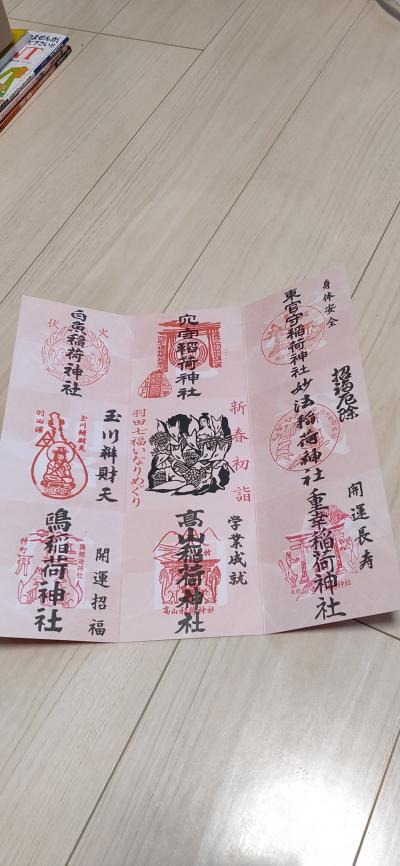 身体安全
東官守稲荷神社
招福厄除
妙法稲荷神社
開運長寿
重幸稲荷神社
穴守稲荷神社
新春初詣
羽田七福いなりめぐり
学業成就
高山稲荷神社
高山稲荷神社
白魚稲荷神社
火
伏
玉川辨財天
玉川辨財天
開運招福
鴎稲荷神社
鴎稲荷神社
仲町